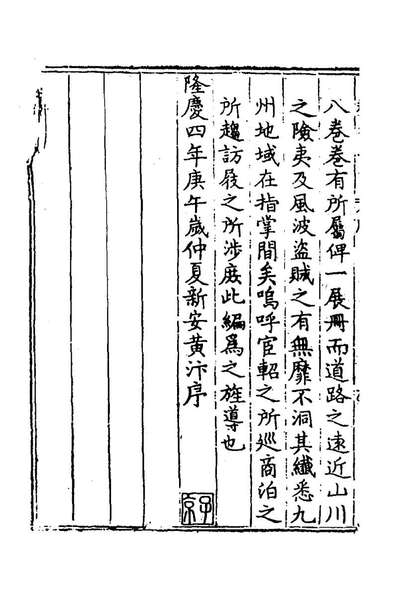 八卷卷有所屬俾一展冊而道路之遠近山川
之險夷及風波盜賊之有無靡不洞其纖悉九
州地域在指掌間矣嗚呼宦軺之所巡商泊之
所趨訪屐之所涉庶此編爲之旌導也
隆慶四年庚午歲仲夏新安黃汴序